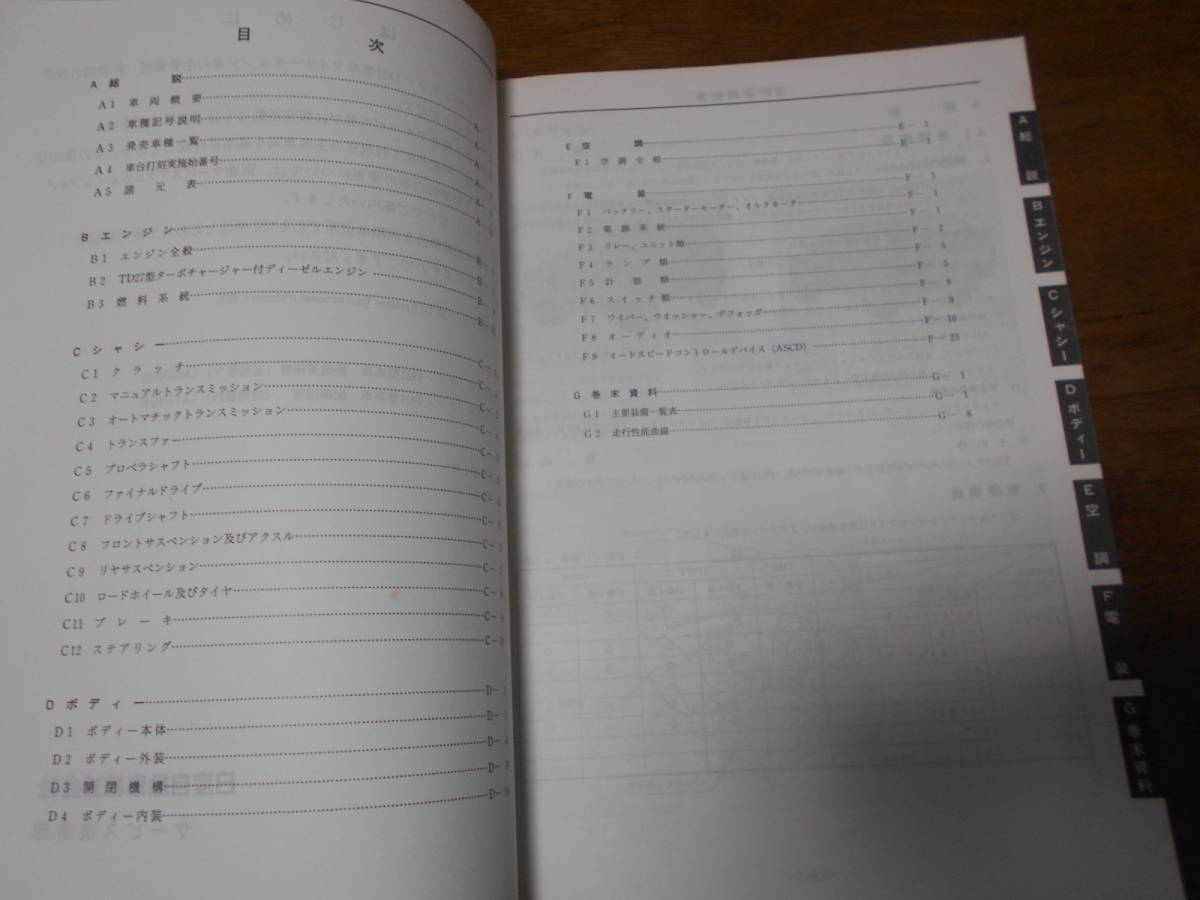 目次
A 総説
A1 車両概要 A-
A2 車種記号説明 A-
A3 発売車種一覧 A-
A4 車台打刻実施始番号 A-
A5 諸元表 A-
B エンジン
B1 エンジン全般 B-
B2 TD27型ターボチャージャー付ディーゼルエンジン B-
B3 燃料系統 B-
C シャシー C-1
C1 クラッチ C-
C2 マニュアルトランスミッション C-
C3 オートマチックトランスミッション C-
C4 トランスファー C-
C5 プロペラシャフト C-
C6 ファイナルドライブ C-
C7 ドライブシャフト C-
C8 フロントサスペンション及びアクスル C-7
C9 リヤサスペンション C-7
C10 ロードホイール及びタイヤ C-8
C11 ブレーキ C-
C12 ステアリング C-
D ボディー D-1
D1 ボディー本体 D-1
D2 ボディー外装 D-4
D3 開閉機構 D-
D4 ボディー内装 D-
E 空調 E-1
E1 空調全般 E-1
F 電装 F-1
F1 バッテリー、スターターモーター、オルタネータ F-1
F2 電源系統 F-1
F3 リレー、ユニット類 F-2
F4 ランプ類 F-5
F5 計器類 F-5
F6 スイッチ類 F-8
F7 ワイパー、ウオッシャー、デフォッガ F-9
F8 オーディオ F-10
F9 オートスピードコントロールデバイス(ASCD) F-23
G 巻末資料 G-1
G1 主要装備一覧表 G-1
G2 走行性能曲線 G-8
A 総説
B エンジン
C シャシー
D ボディー
E 空調
F 電装
G 巻末資料